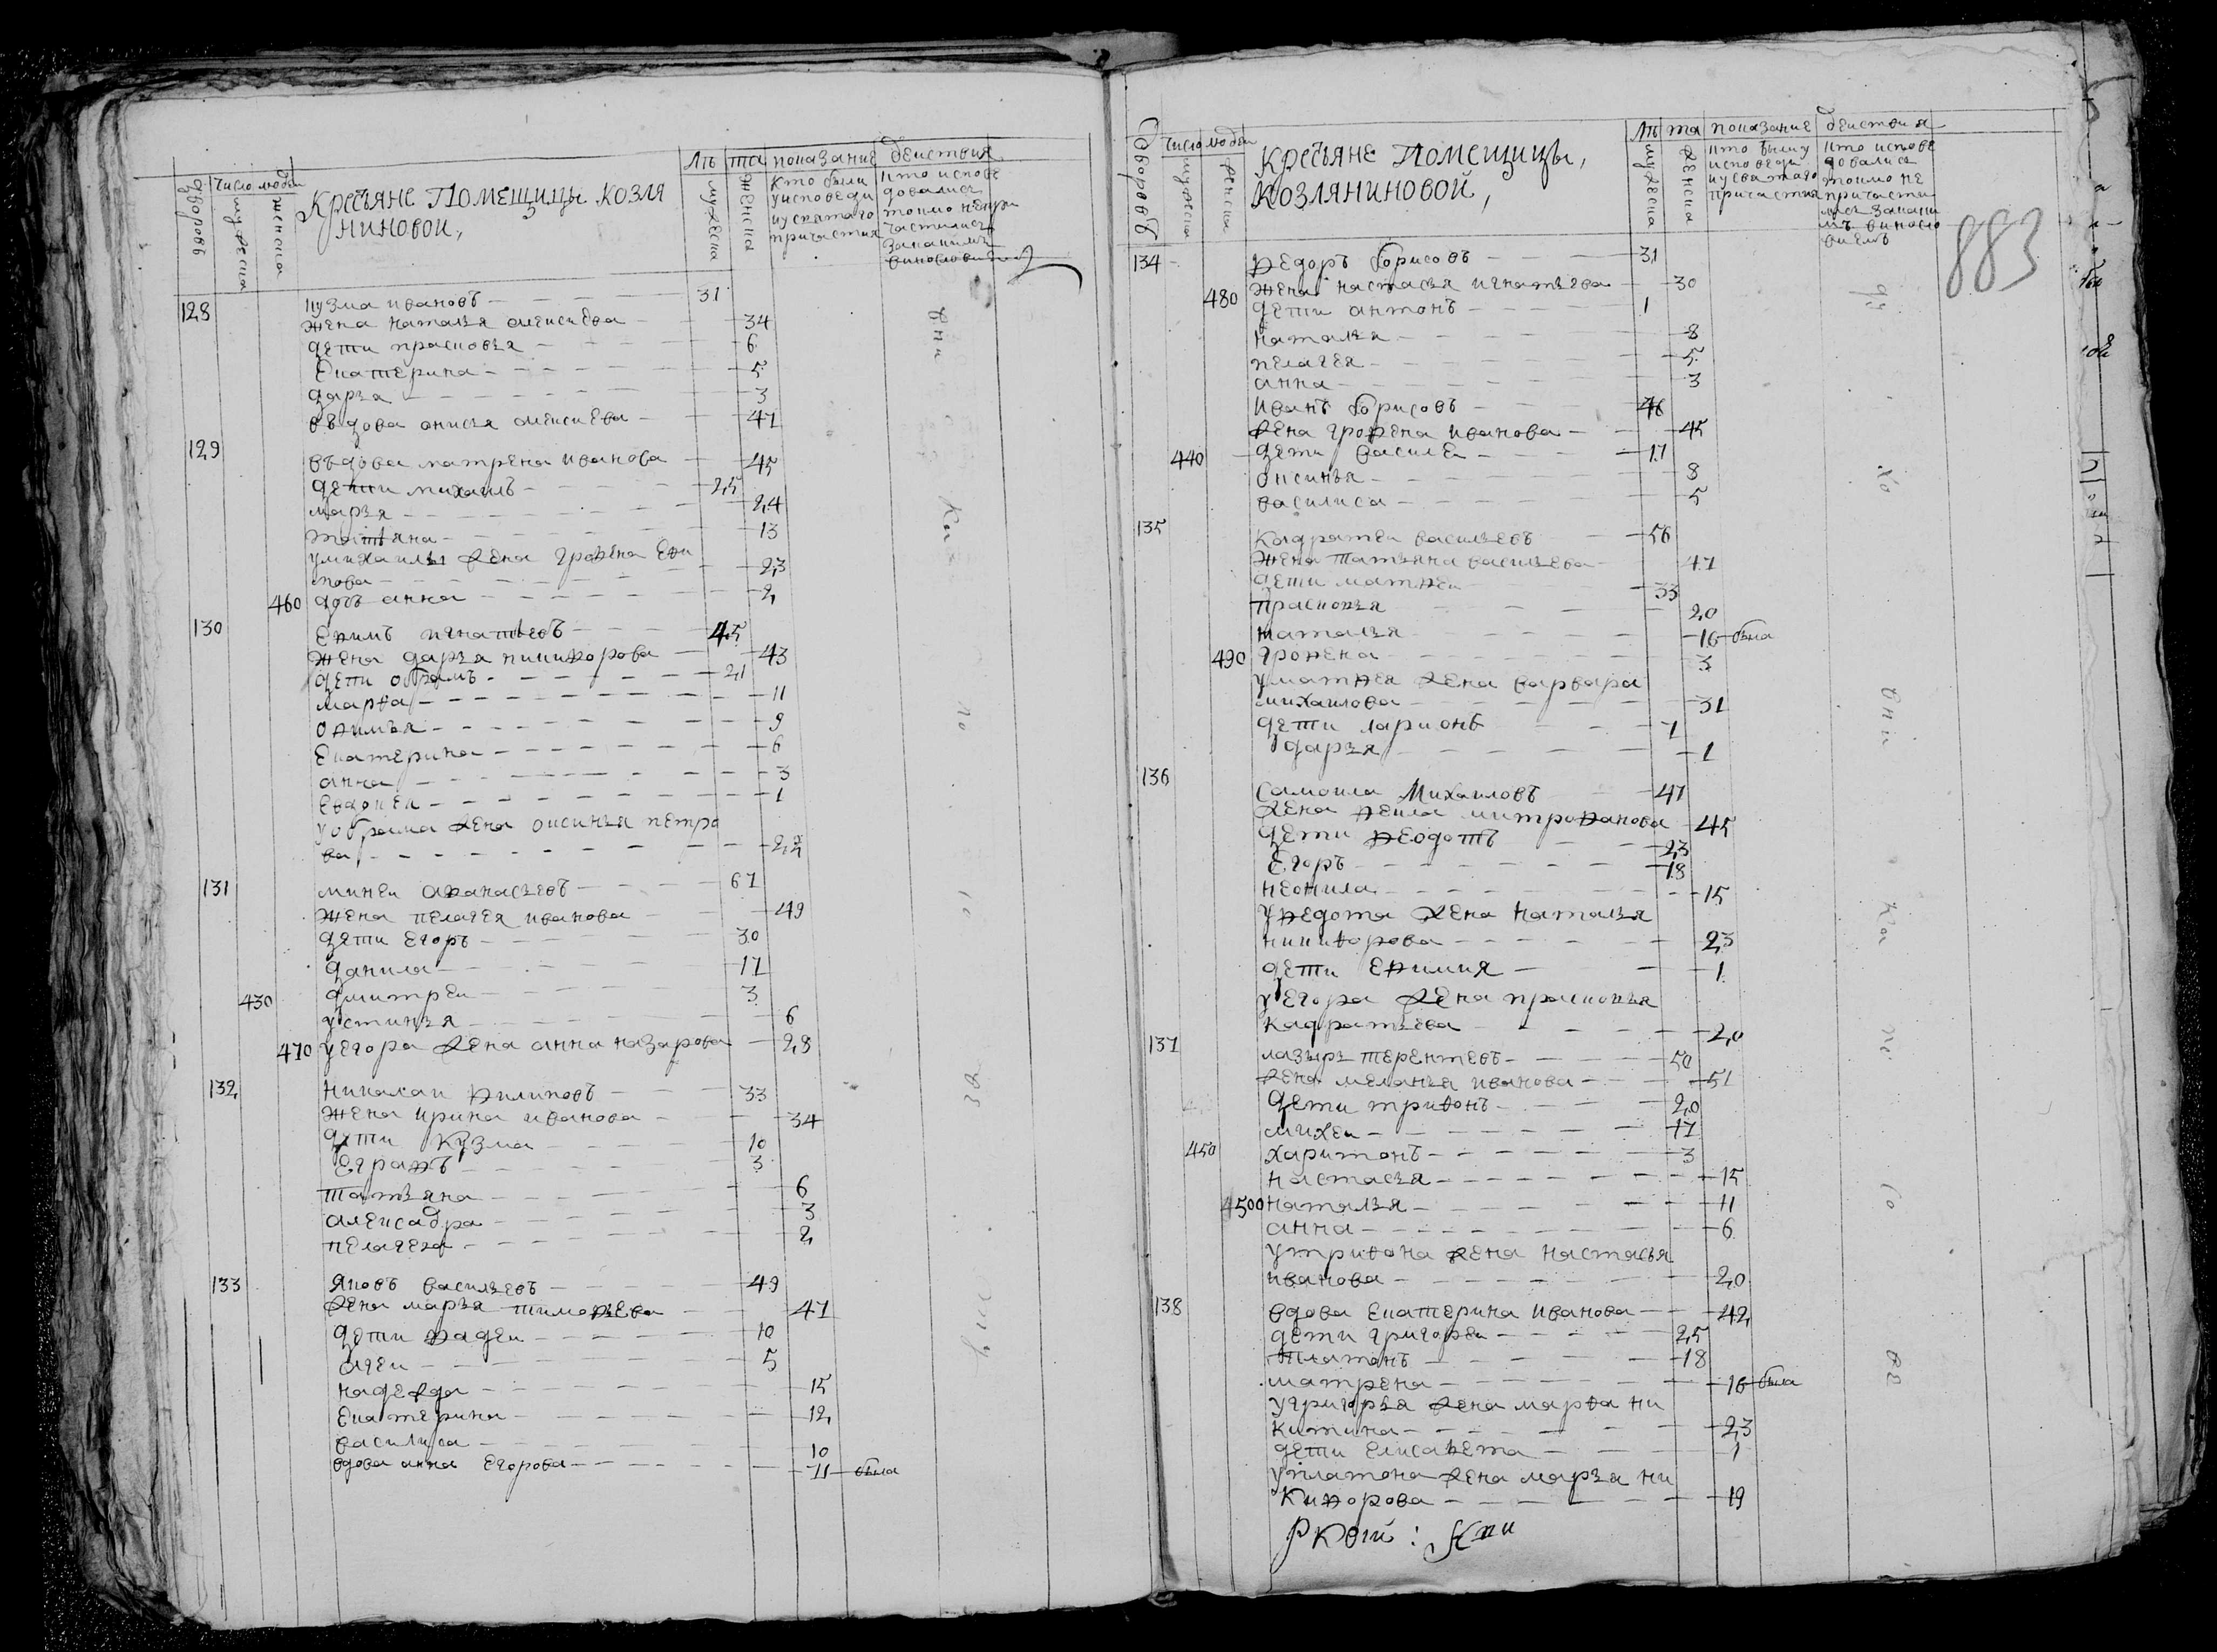 дворовъ
число людеи
мужеска
женска
Кресьяне Помещицы козля
ниновои,
лѣ та показание деиствия
мужеска
женска
кто были
уисповеди
исвятаго
причастия
кто испове
довались
токмо непри
частились
128 кузма ивановъ 31
жена наталья алексиева 34
дети прасковья 6
Екатерина 5
дарья 3
въдова анисья алексиева 47
129 въдова матрена иванова 45
дети михаилъ 25
марья 24
татьяна 13
умихаилы жена графена Ефи
мова 23
460 дочь анна 2
130 Ефимъ игнатьевъ 45
жена дарья никифорова 43
дети абрамъ 21
марѳа 11
афимья 9
Екатерина 6
анна 3
Евдокеи 1
уабрама жена аксинья петро
ва 22
131 минеи афанасьевъ 67
жена пелагея иванова 49
дети Егоръ 30
данила 17
430 дмитреи 3
устинья 6
470 уегора жена анна назарова 28
132 никалаи филиповъ 33
жена ирина иванова 34
дети Кузма 10
Еграфъ 3
татьяна 6
алексадра 3
пелагея 2
133 яковъ васильевъ 49
жена марья тимофьева 47
дети фадеи 10
агеи 5
надежда 15
Екатерина 12
василиса 10
вдова анна Егорова 71 была
дворовъ
число людеи
мужеска
женска
Кресьяне Помещицы,
Козляниновой,
лѣ та показание деиствия
мужеска
женска
кто были у
исповеди
исвятаго
причастия
кто испове
довались
токмо не
причасти
883
134 федоръ борисовъ 31
жена настасья игнатьева 30
480 дети антонъ 1
наталья 8
пелагея 5
анна 3
Иванъ борисовъ 46
жена графена иванова 45
440 дети василеи 17
аксинья 8
василиса 5
135 Кадратеи васильевъ 56
жена татьяна васильева 47
дети матфеи 33
прасковья 20
наталья 16 была
490 графена 3
уматфея жена варвара
михаилова 31
дети ларионъ 1
дарья 1
136 Самоила Михаиловъ 47
жена фекла митрофанова 45
дети федотъ 23
Егоръ 18
неонила 15
уфедота жена наталья
никиѳорова 23
дети Ефимия 1
уегора жена прасковья
кадратьева 20
137 лазырь терентевъ 50
жена меланья иванова 51
дети триѳонъ 20
михеи 17
450 харитонъ 3
настасья 15
4500 наталья 11
анна 6
утриѳона жена настасья
иванова 20
138 вдова Екатерина Иванова 42
дети григореи 25
платонъ 18
матрена 16 была
угригорья жена марѳа ни
китина 23
дети елисавета 1
уплатона жена марья ни
кифорова 19